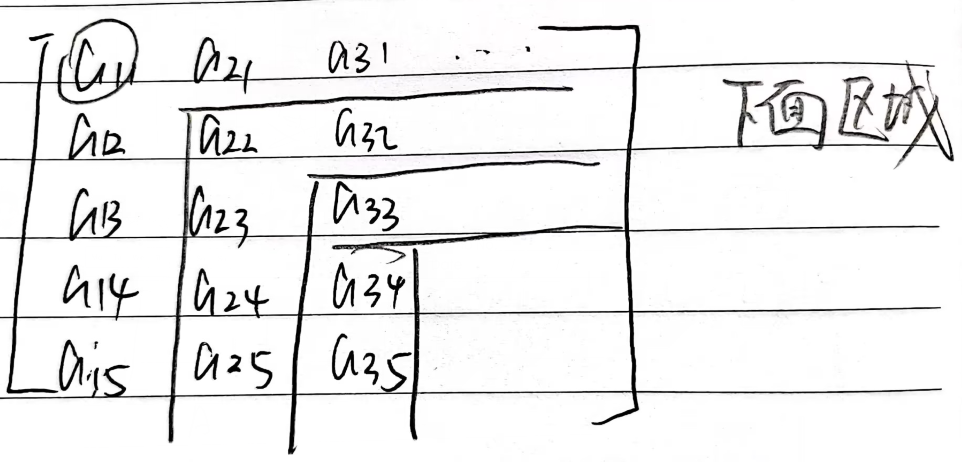 a11 a21 a31 ...
下面区域
a12 a22 a32
a13 a23 a33
a14 a24 a34
a15 a25 a35